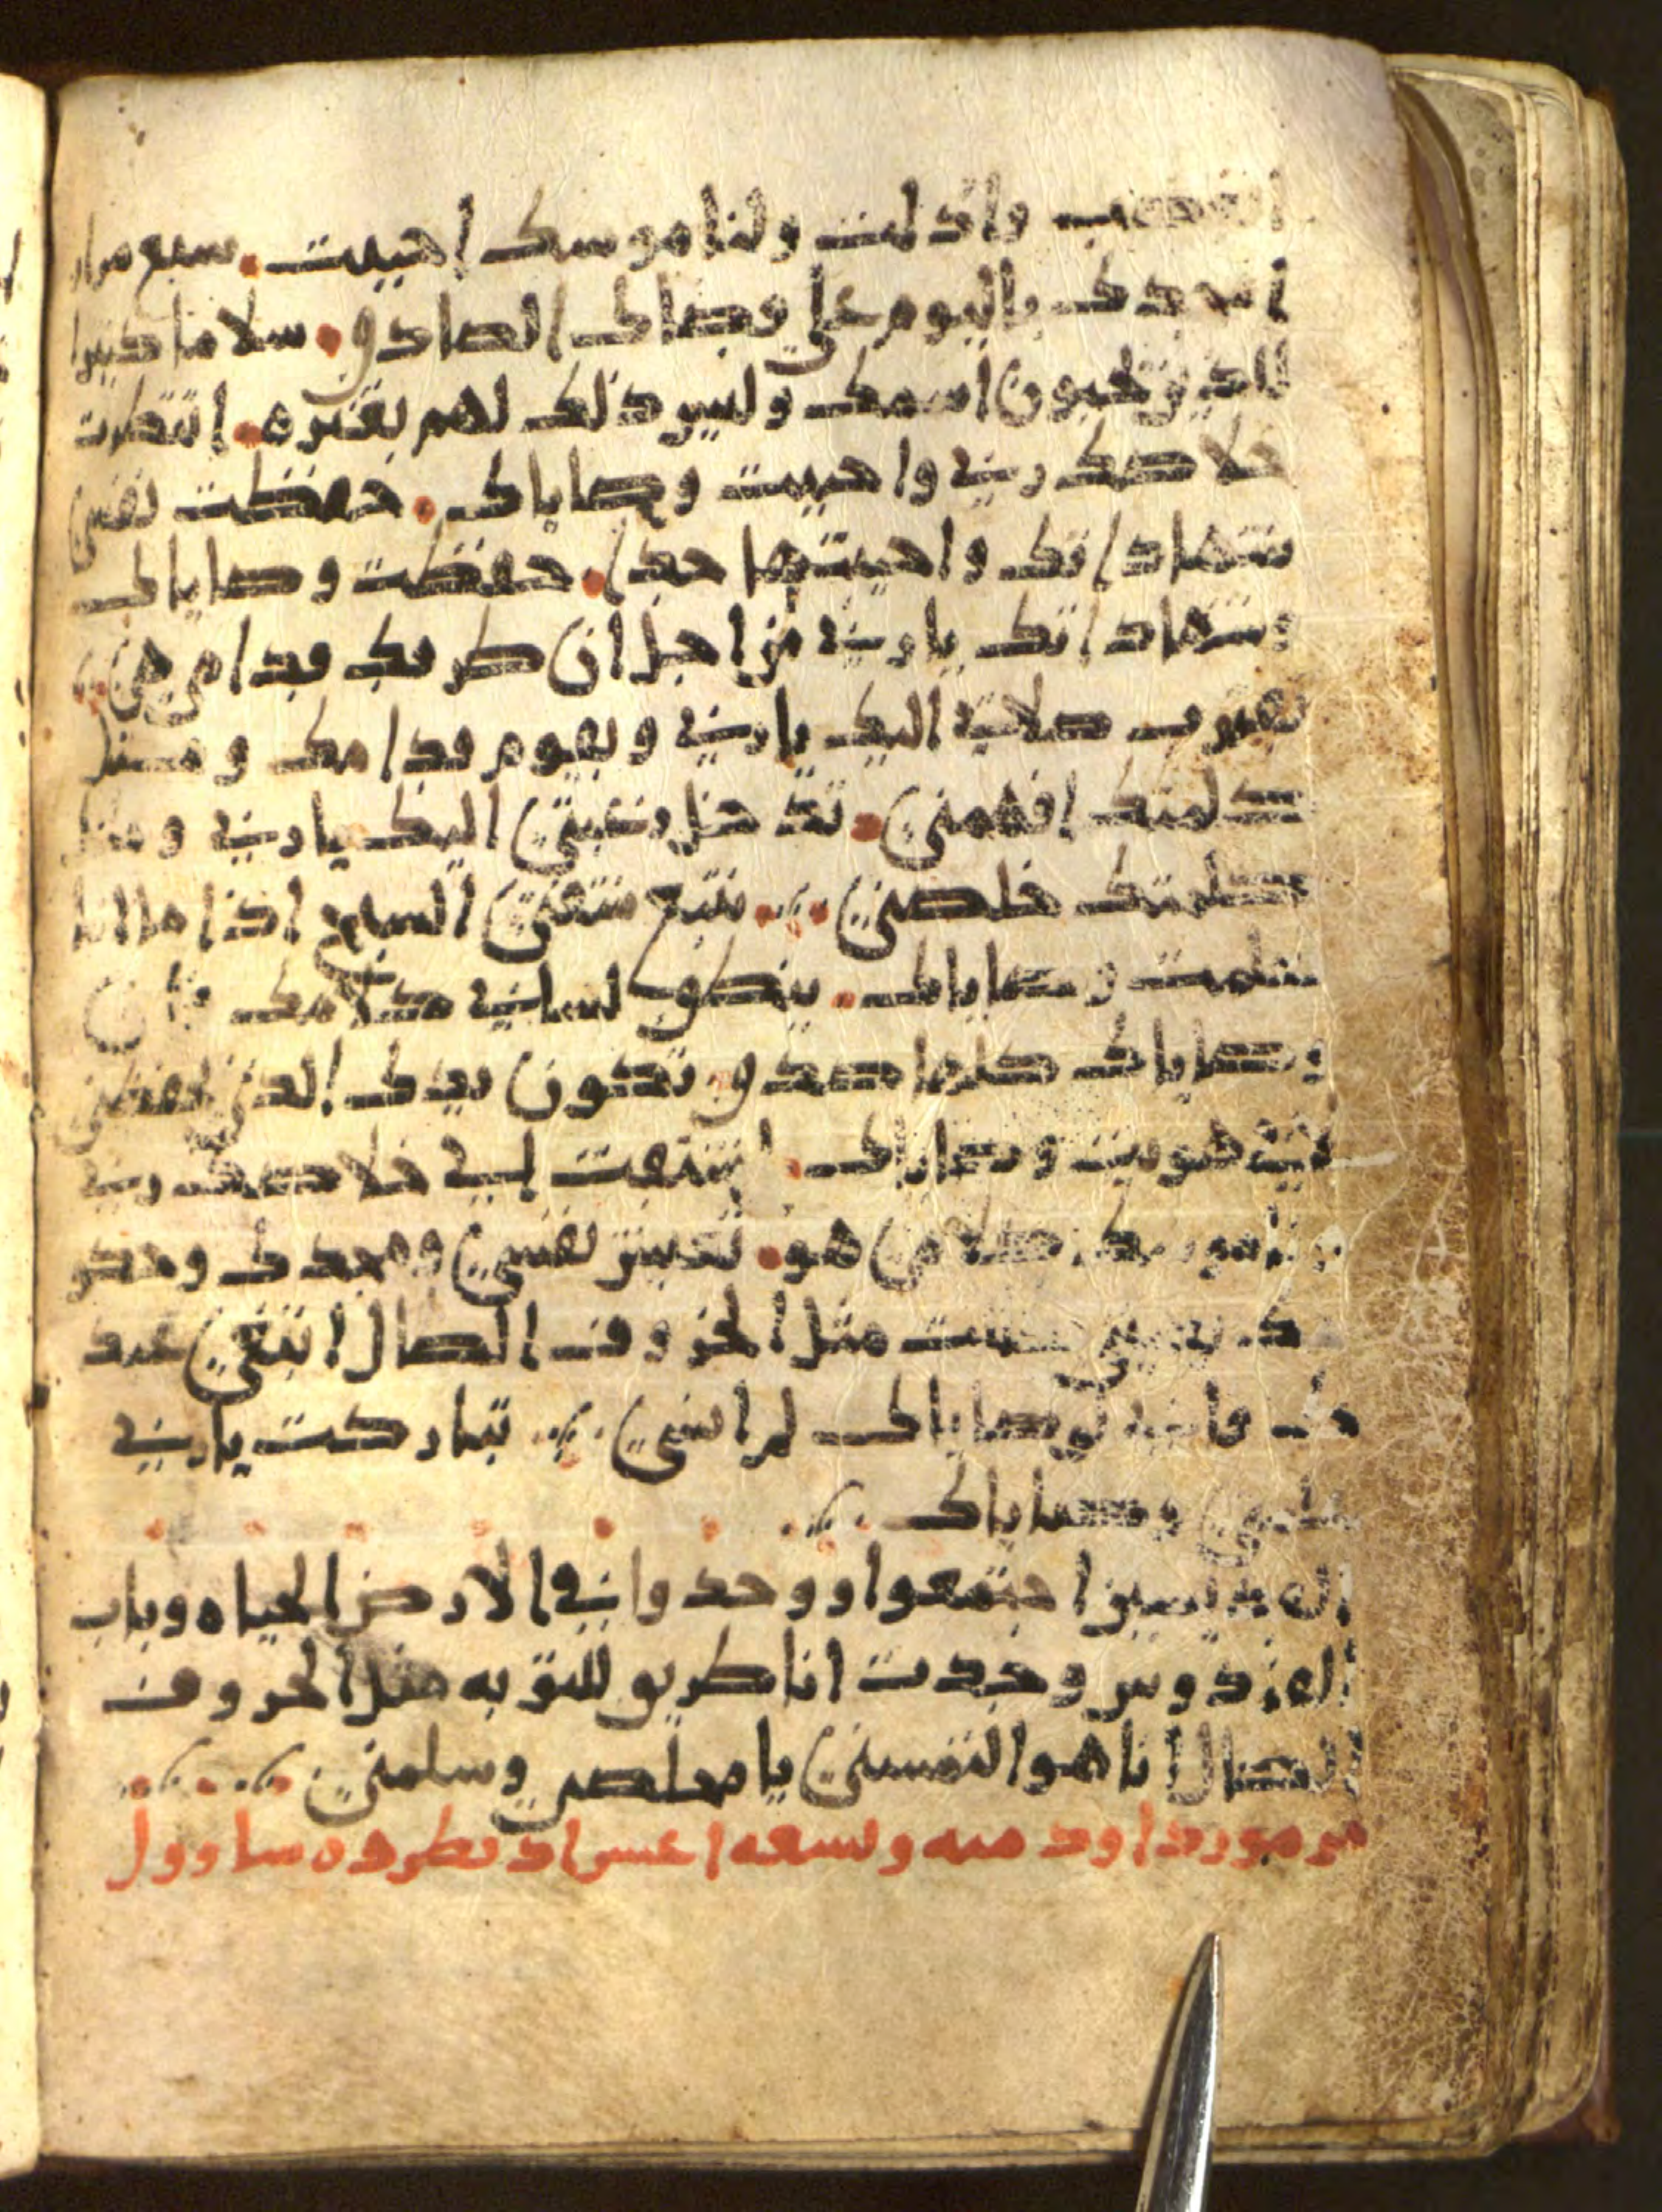 ابغضت واذلت ولناموسك احببت. سبع مرار
امجدك باليوم على قضاك الصادق. سلاما كثيرا
للذين يحبون اسمك وليس ذلك لهم بعثره. انتظرت
خلاصك ربي واحببت وصاياك. حفظت نفسي
شهاداتك واحببتها جدا. حفظت وصاياك
وشهاداتك يارب من اجل ان طرقك قدامي هي
تقترب صلاتي اليك ياربي وتقوم قدامك ومثل
كلمتك افهمني. تدخل رغبتي اليك ياربي ومثل
كلمتك خلصني. تنبع شفتي السبح اذا ما انا
تعلمت وصاياك. ينطق لساني كلامك فان
وصاياك كلها صدق. تكون يدك الذي تحفظني
لاني هويت وصاياك. اشتقت لي خلاصك ربي
وناموسك كلامي هو. تعيش نفسي وتمجدك وحكو
مثل الخروف الضال ابتغي عبد
ك فاني لوصاياك لم انسى. تباركت ياربي
علمني وصاياك
ان القديسين اجتمعوا ووحدوا في الارض الحياه وباب
الفردوس وجدت انا طريق للتوبه مثل الخروف
الضال انا هو التمسني يا مخلصي وسلمني
مزمور داود ميه وتسعه اعشر اد بطرده ساوول